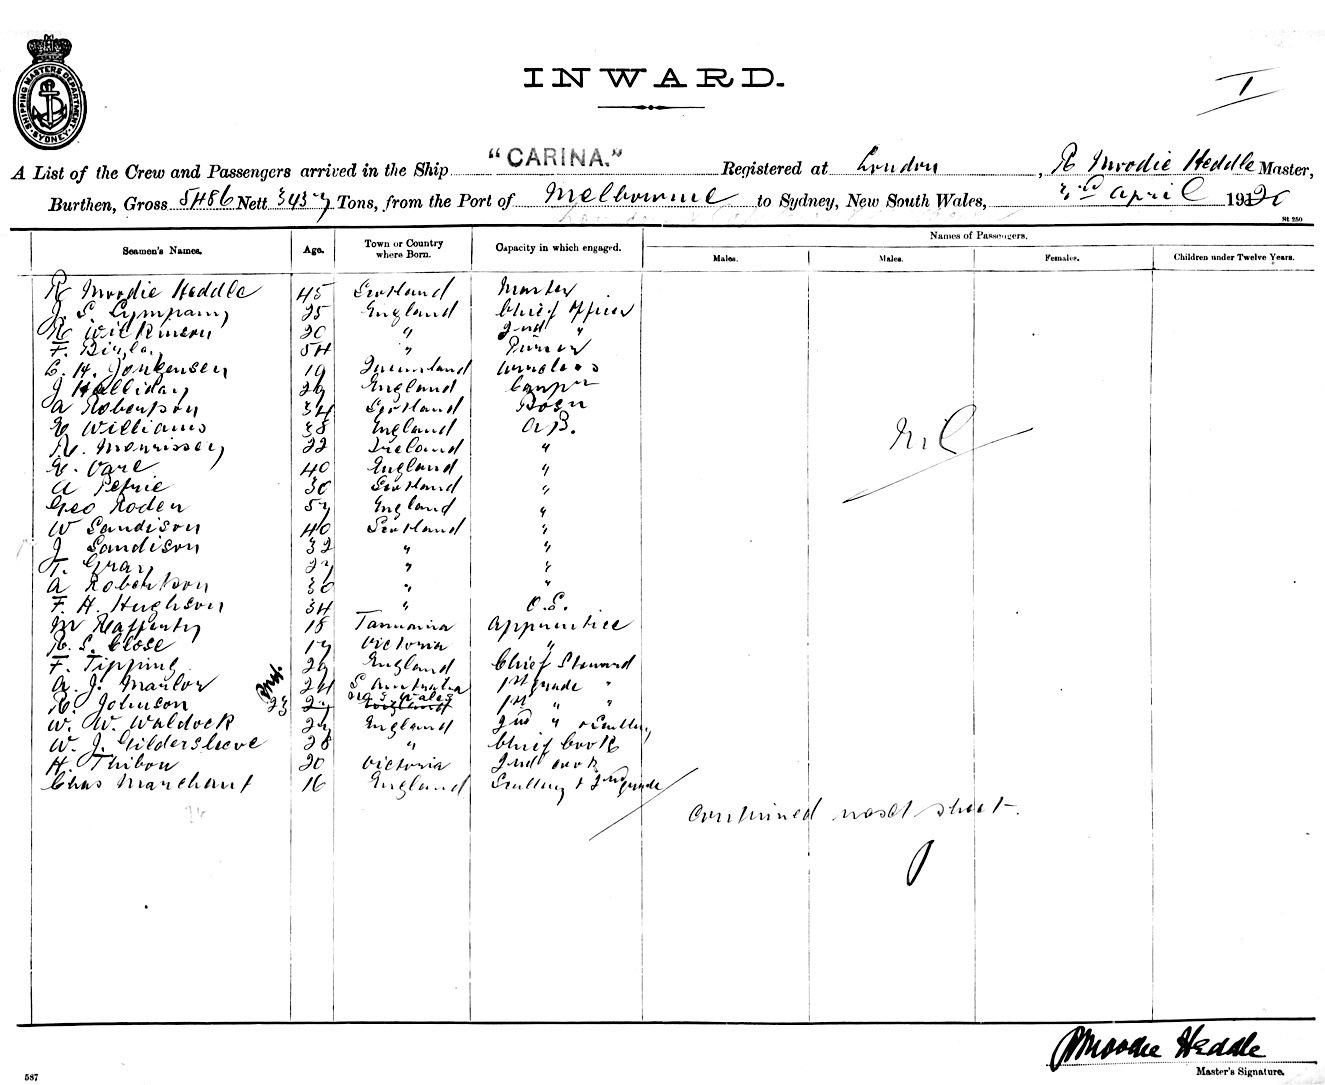 SHIPPING MASTERS DEPARTMENT SYDNEY
INWARD.
I
A List of the Crew and Passengers arrived in the Ship "CARINA." Registered at London, R Moodie Heddle Master,
Burthen, Gross 5486 Nett 3437 Tons, from the Port of Melbourne to Sydney, New South Wales, 3rd April 1920
St 250
Names of Passengers.
Seamen's Names. Age. Town or Country where Born. Capacity in which engaged. Males. Males. Females. Children under Twelve Years.
R Moodie Heddle 45 Scotland Master
J. S. Lympany 25 England Chief Officer
R Wilkinson 20 " 2nd "
F. 54 " Purser
C. H. Jorgensen 19 Queensland Wireless
J Halliday 29 England Carptr
A Robertson 34 Scotland Bosn
E Williams 38 England A.B.
R. Morrissey 22 Ireland "
E. Vare 40 England "
A Petrie 30 Scotland "
Geo Roden 57 England "
W Sandison 40 Scotland "
J Sandison 32 " "
T. Gray 27 " "
A Robertson 30 " "
F. H. Hughson 34 " O.S.
M Rafferty 18 Tasmania Apprentice
R. S. Close 17 Victoria "
F. Tipping 29 England Chief Steward
A. J. Manlov 24 S Australia 1st grade "
R. Johnson 23 27 N S Wales England 1st " "
W. W. Waldock 27 England 2nd " & Scullery
W. J. Gildersleeve 28 " Chief Cook
H. Thibou 20 Victoria 2nd Cook
Chas Marchant 16 England Scullery & 2nd grade
Nil
continued next sheet.
R Moodie Heddle
Master's Signature.
587